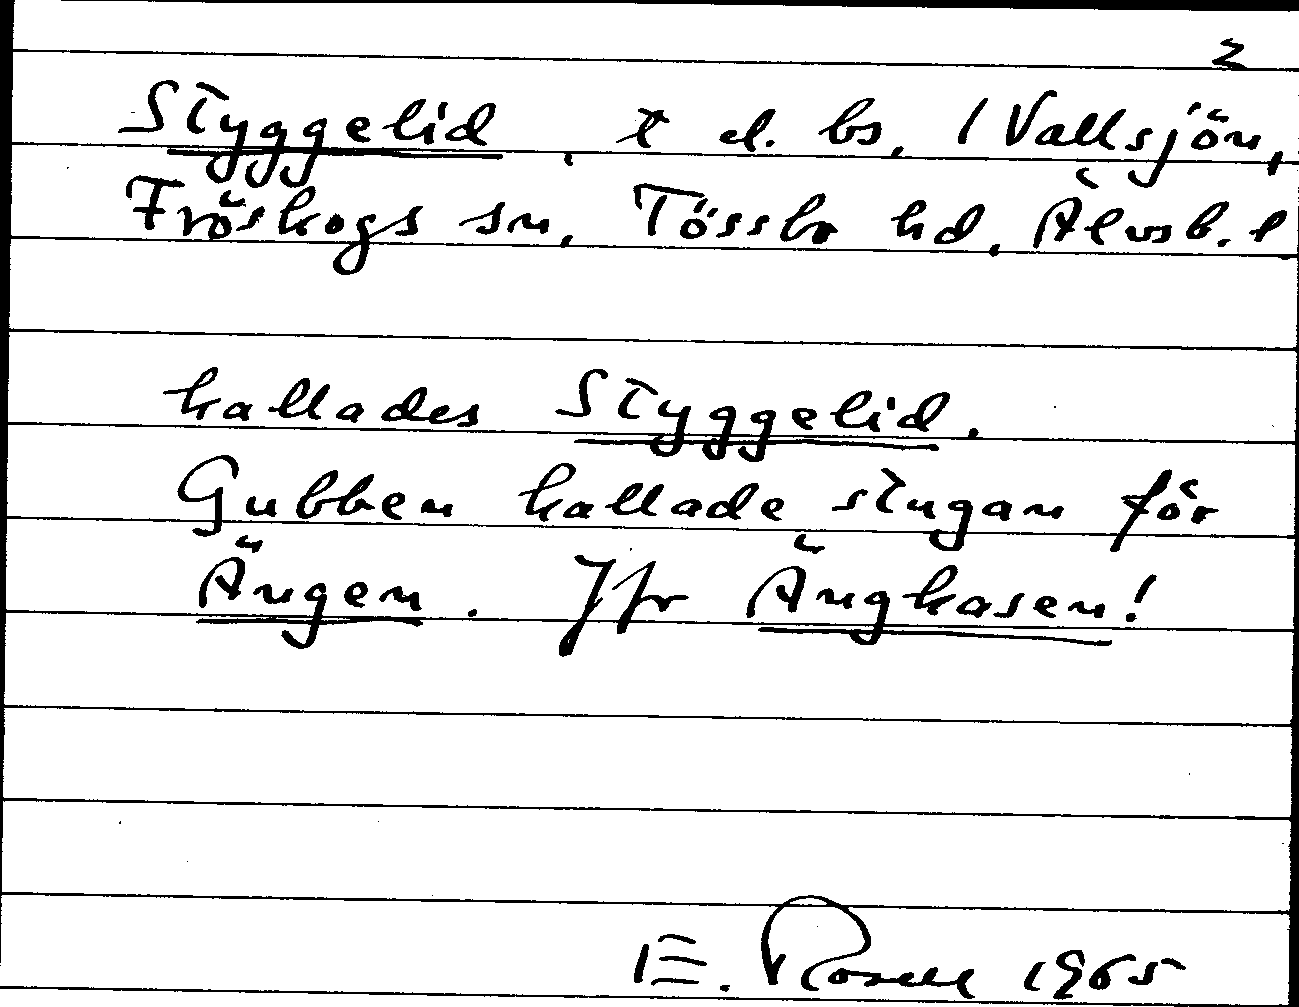 2
Styggelid, t d. bs, 1 Vallsjön,
Fröskogs sn, Tössbo hd, Älvsb. l
kallades Styggelid.
Gubben kallade stugan för
Ängen. Jfr Ängkasen!
E. Rosell 1965